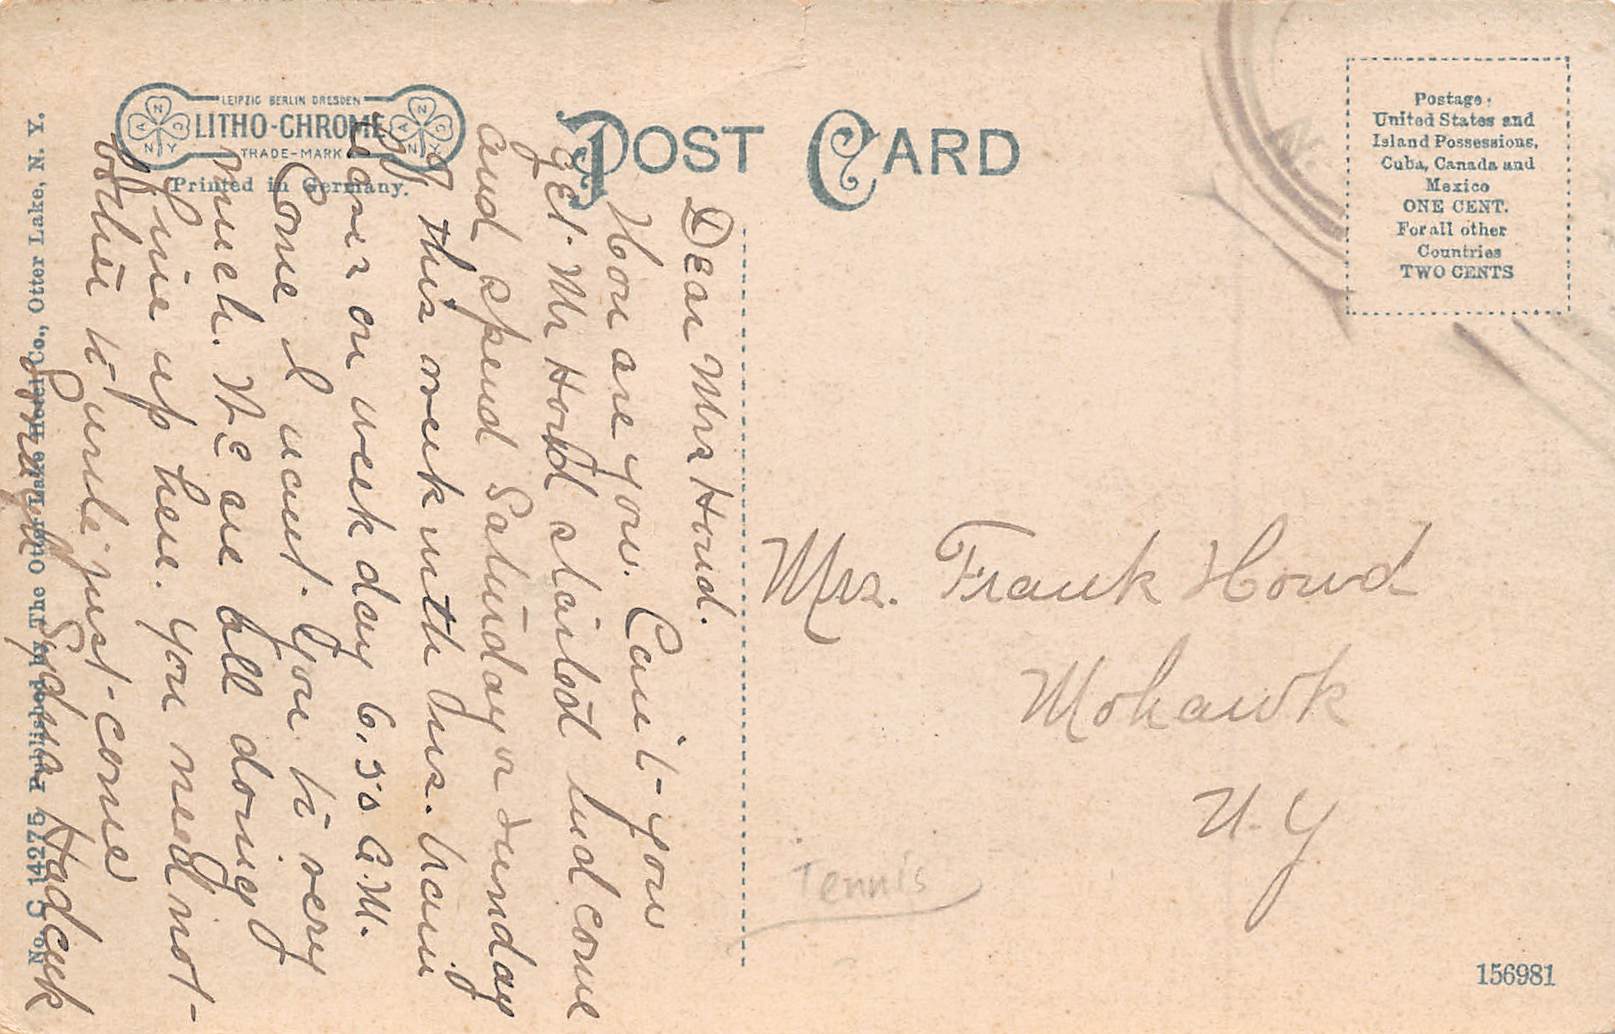 LEIPZIG BERLIN DRESDEN
LITHO-CHROME
TRADE-MARK
Printed in Germany.
POST CARD
Postage:
United States and
Island Possessions,
Cuba, Canada and
Mexico
ONE CENT.
For all other
Countries
TWO CENTS
Dear Mrs Howd.
How are you. Can't you
get Mr Howd started and come
and spend Saturday or Sunday
of this week with us. train
leaves on week day 6.50 A.M.
Come I want you to very
much. We are all doing
fine up here. you need not
bother to write just come
Edna
No. C 14275 Published by The Otter Lake Hotel Co., Otter Lake, N. Y.
Mrs. Frank Howd
Mohawk
N.Y
Tennis
156981